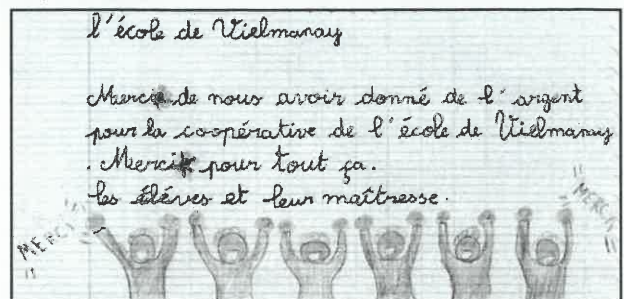 l'école de Vielmanay
Merci de nous avoir donné de l'argent
pour la coopérative de l'école de Vielmanay
. Merci pour tout ça.
les éléves et leur maîtresse.
MERCI
MERCI